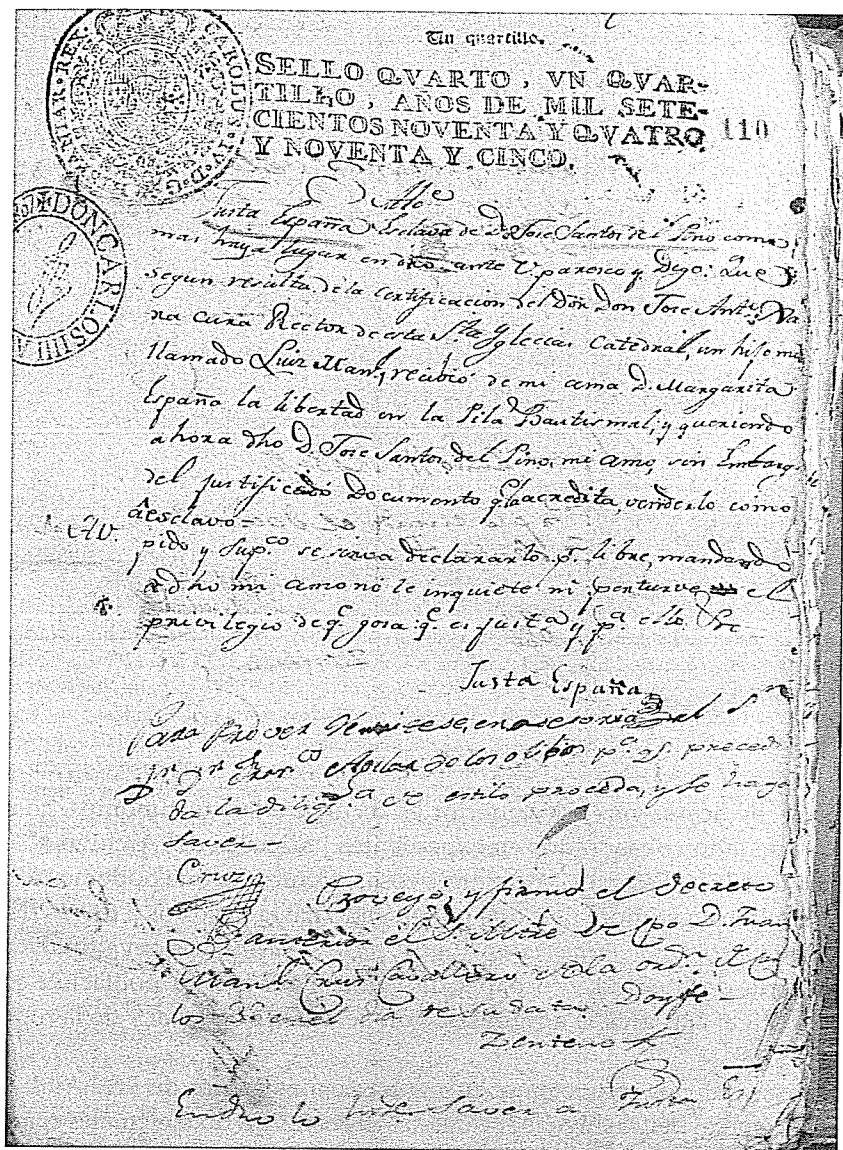 Un quartillo.
SELLO QVARTO, VN QVAR-
TILLO, AÑOS DE MIL SETE-
CIENTOS NOVENTA Y QVATRO
Y NOVENTA Y CINCO.
110
CAROLUS IV D G
HISPANIAR REX
DON CARLOS IIII
Justa España Esclava de Dn. Jose Santos del Pino como
mas haya lugar en dro. ante V. paresco y Digo: Que
segun resulta de la certificacion del Dor. Don Jose Anto.
cura Rector de esta Sta. Yglecia Catedral, un hijo mio
llamado Luis Manl. recibió de mi ama Da. Margarita
España la libertad en la Pila Bautismal; y queriendo
ahora dho D. Jose Santos del Pino, mi amo, sin Embargo
del justificado Documento q. lo acredita, venderlo como
a esclavo-
pido y supco. se sirva declararlo pr. libre, mandando
a dho mi amo no le inquiete ni perturve el
privilegio de q. gosa q. es justa y pa. ello &c
Justa España
Para proveer en asesoria del Sr.
de los Olibos pa. qe. preceda
da la diliga. de estilo proceda, y se haga
saver -
Cruz
Proveyó, y firmó el decreto
anterior el Sr. Mtre de Cpo D. Juan
Manl. Cruz Cavallero de la ordn. de
los en el dia de su data Doy fe -
Zenteno
En dho lo hise saver a Justa